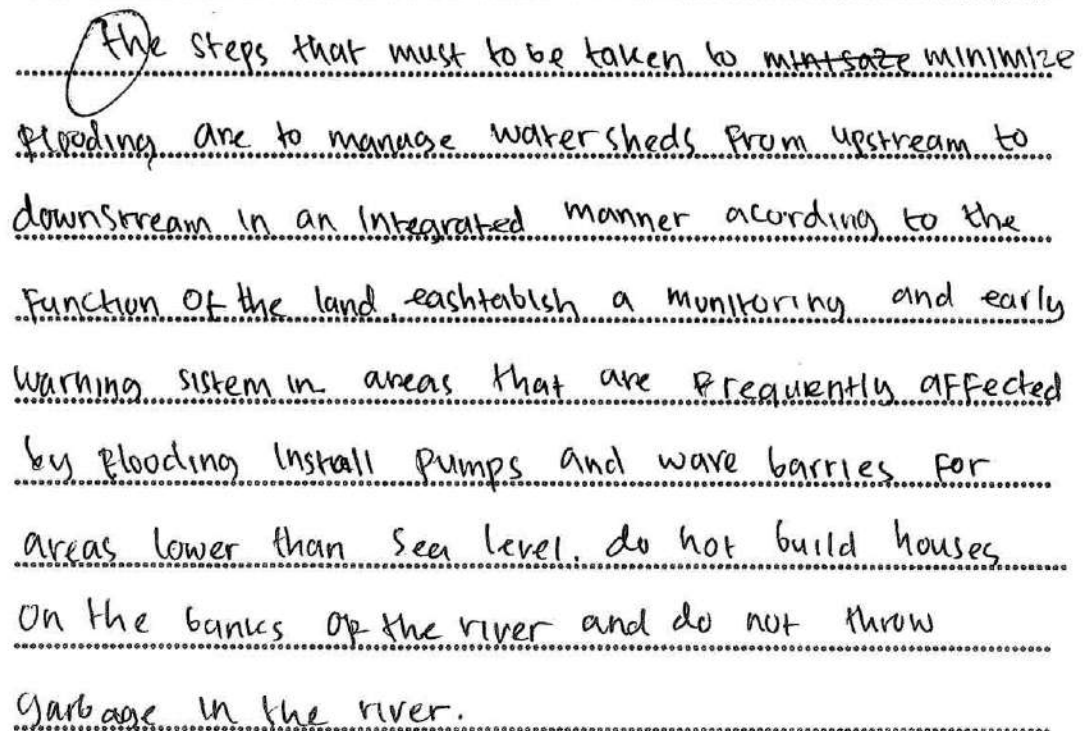 the steps that must to be taken to mintsaze minimize
flooding are to manage watersheds from upstream to
downstream in an integrated manner acording to the
function of the land. eashtablish a monitoring and early
warning sistem in areas that are frequently affected
by flooding install pumps and wave barries for
areas lower than sea level. do not build houses
on the banks of the river and do not throw
garbage in the river.